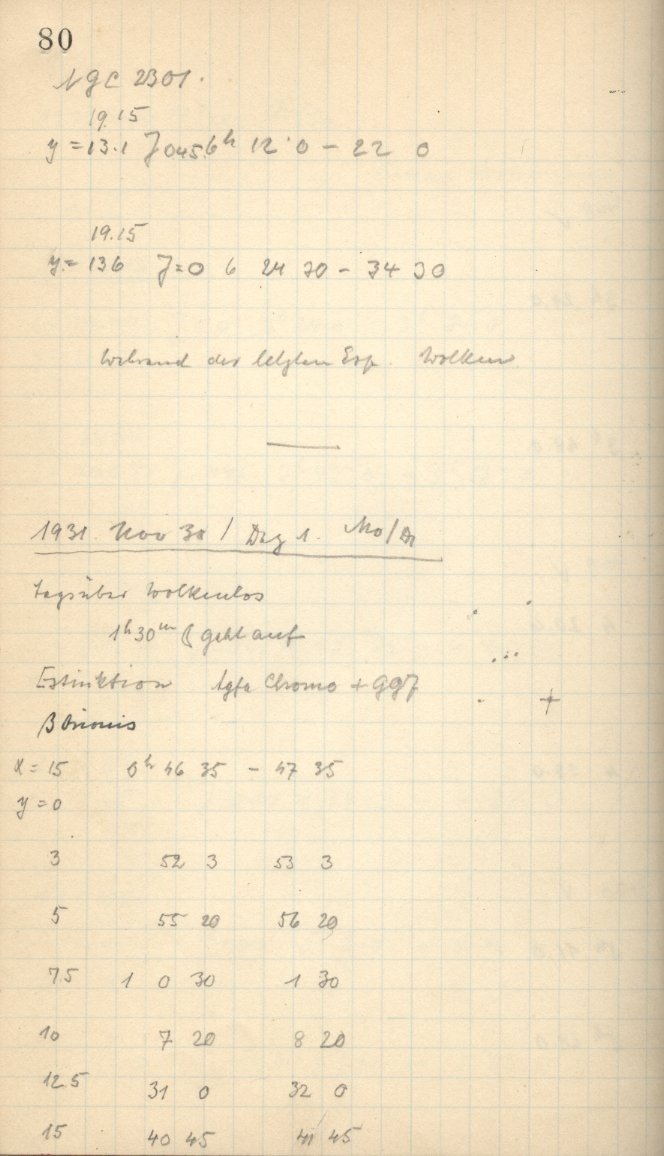 80
NGC 2301.
19.15
y = 13.1 J 045 6h 12 0 – 22 0
19.15
y = 13 6 J = 0 6 24 30 – 34 30
während der letzten Exp. Wolken
1931. Nov 30 / Dez 1. Mo/Di
tagsüber Wolkenlos
1h 30m ☾ geht auf
Extinktion Agfa Chromo + GG7
β Orionis
x = 15 0h 46 35 – 47 35
y = 0
3 52 3 53 3
5 55 20 56 20
7 5 1 0 30 1 30
10 7 20 8 20
12 5 31 0 32 0
15 40 45 41 45